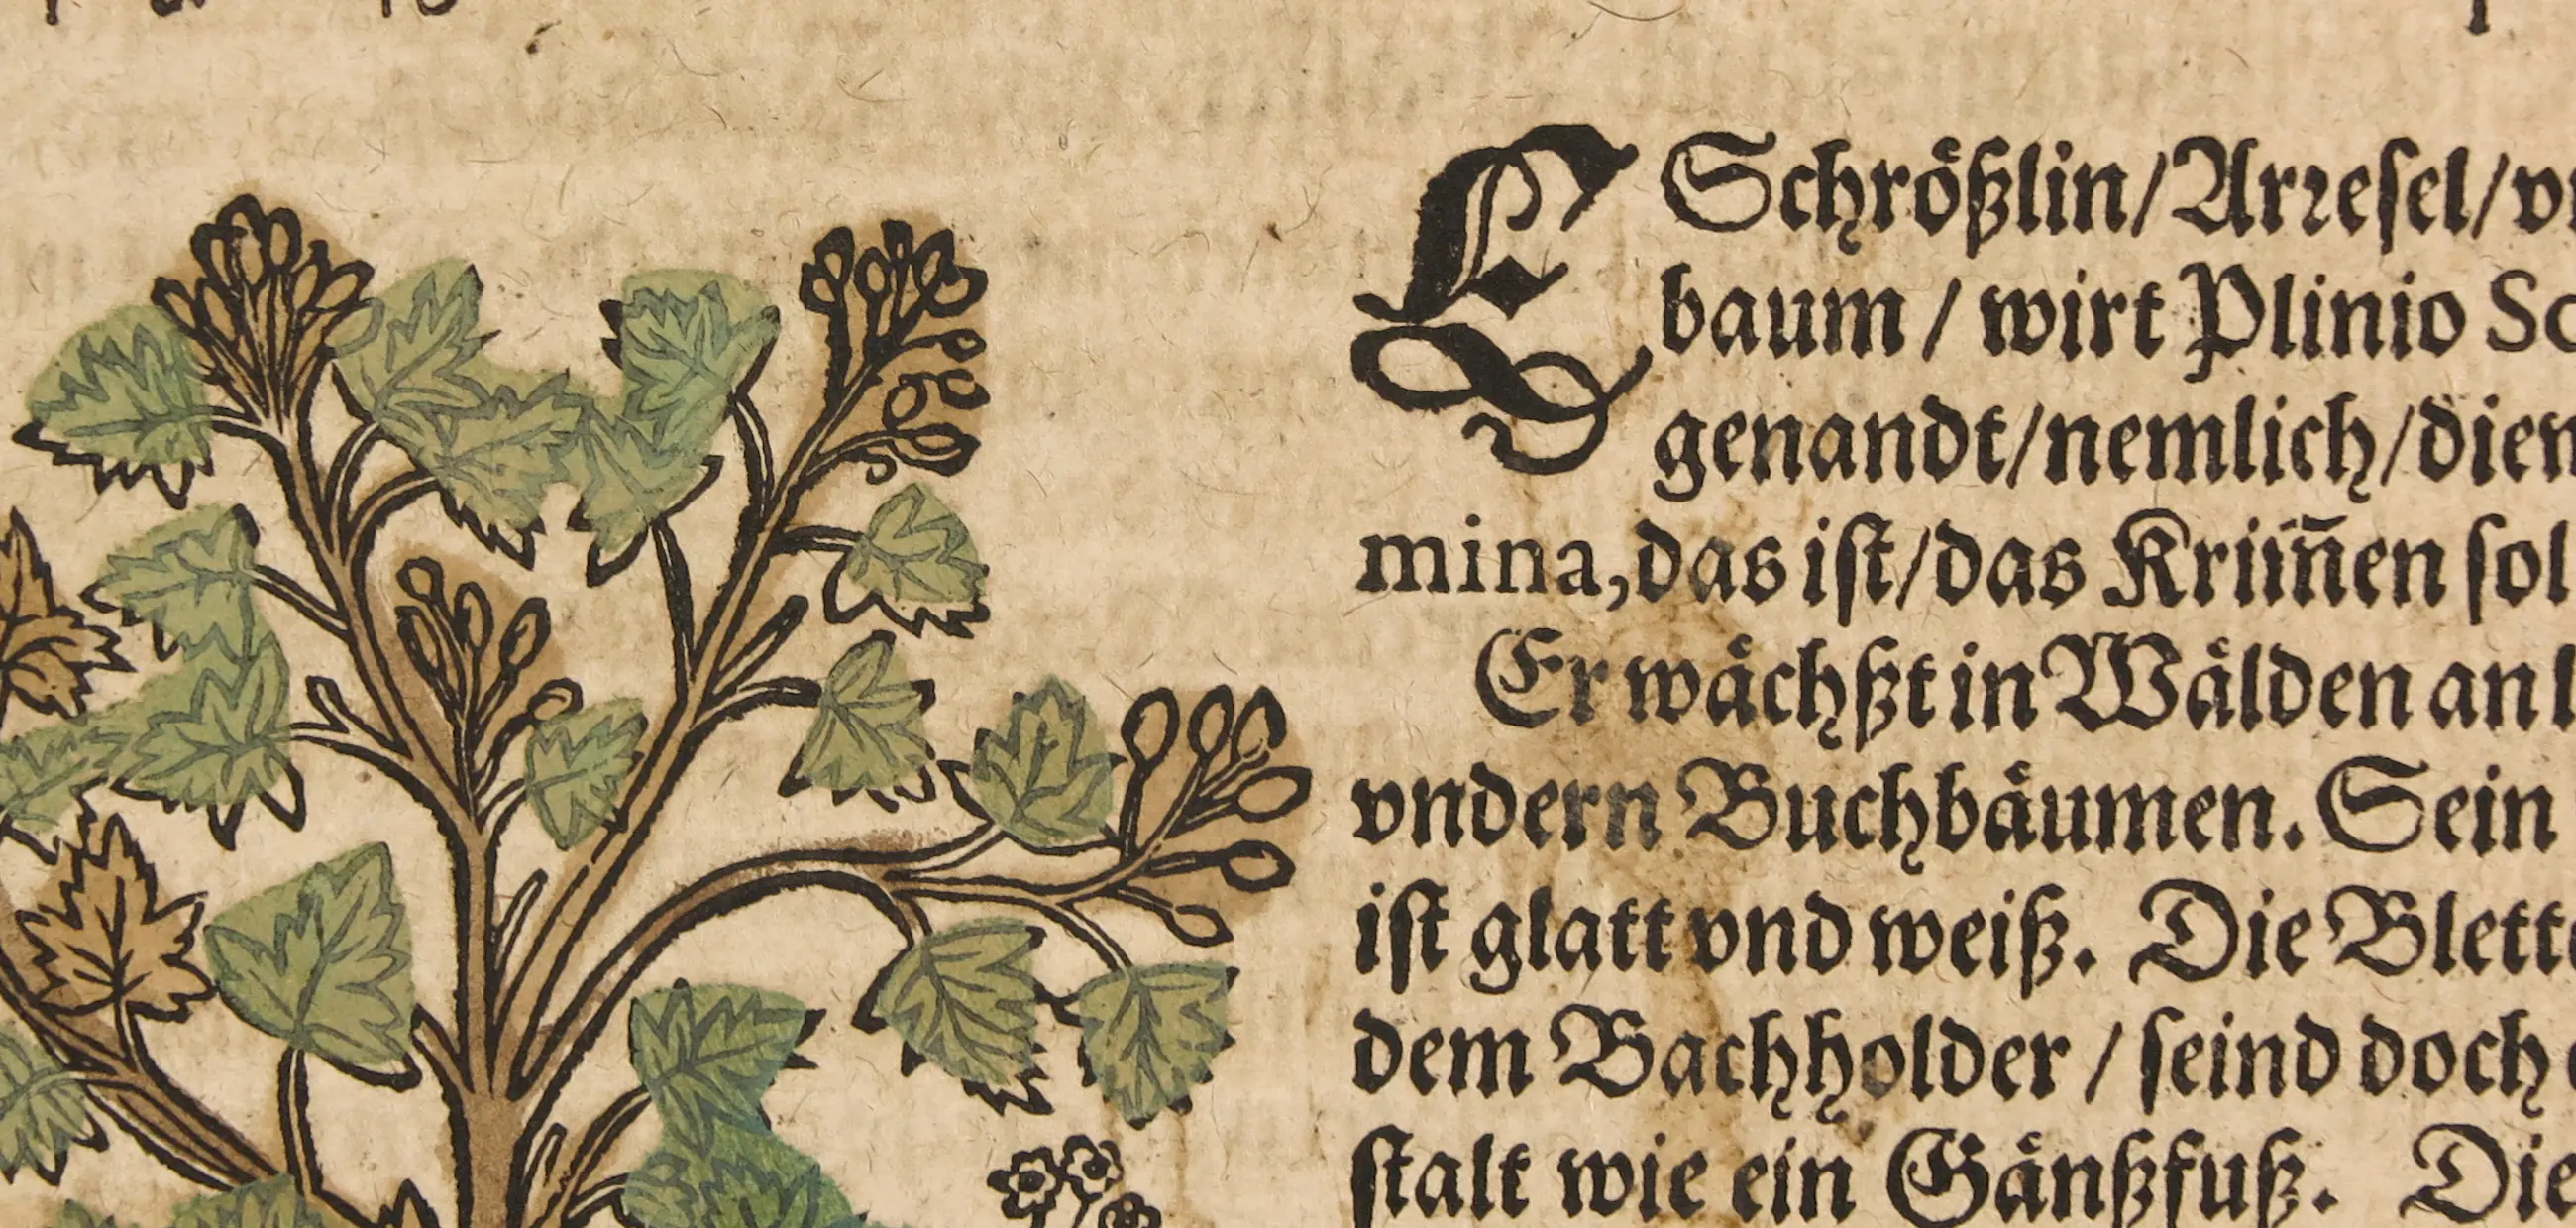 ESchrößlin/Arresel/
baum / wirt Plinio
genandt/nemlich/
mina, das ist/das Krim̃en sol
Er wächßt in Wälden an
vndern Buchbäumen. Sein
ist glatt vnd weiß. Die
dem Bachholder / seind doch
stalt wie ein Gänßfuß. Die